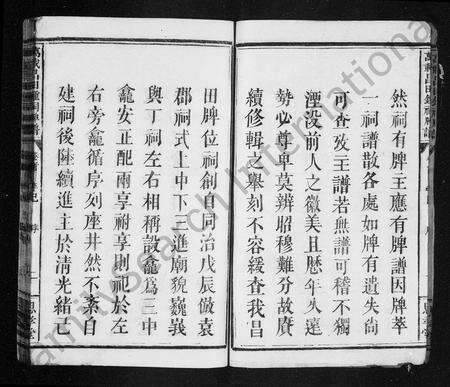 然祠有牌主應有牌譜因牌萃
一祠譜散各處如牌有遺失尙
可查攷主譜若無譜可稽不獨
湮没前人之徽美且歷年久遠
勢必尊卑莫辨昭穆難分故賡
續修輯之舉刻不容緩査我昌
田牌位祠創自同治戊辰倣袁
郡祠式上中下三進廟貌巍峩
與丁祠左右相稱設龕爲三中
龕安正配兩享祔享則祀於左
右旁龕循序列座井然不紊自
建祠後陸續進主於淸光緒己